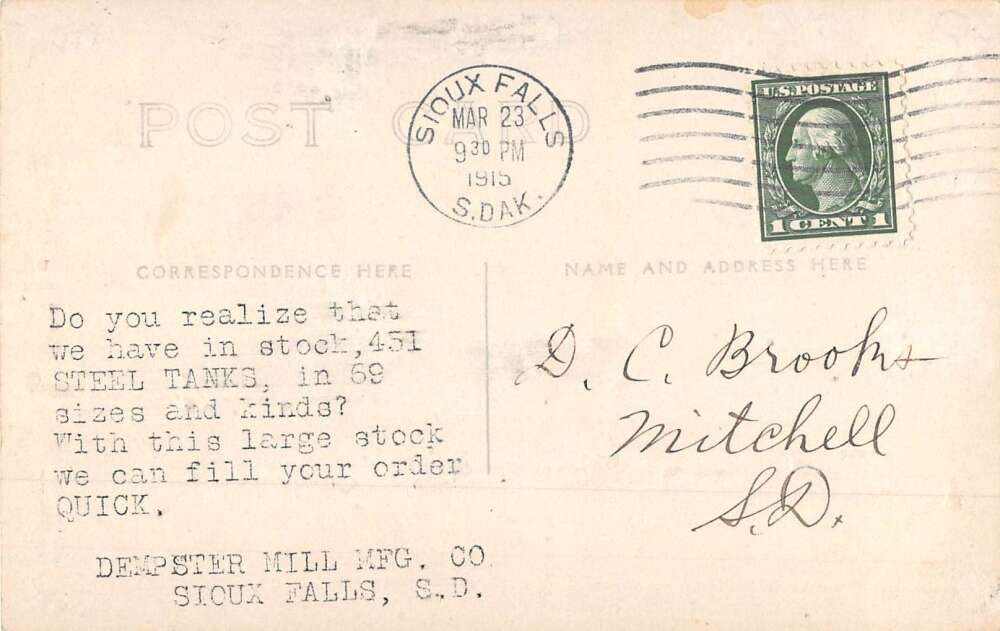 POST CARD
SIOUX FALLS
MAR 23
9 30 PM
1915
S.DAK.
U.S.POSTAGE
1 CENT 1
CORRESPONDENCE HERE
NAME AND ADDRESS HERE
Do you realize that
we have in stock,451
STEEL TANKS, in 69
sizes and kinds?
With this large stock
we can fill your order
QUICK.
DEMPSTER MILL MFG. CO
SIOUX FALLS, S.D.
D. C. Brooks
Mitchell
S.D.